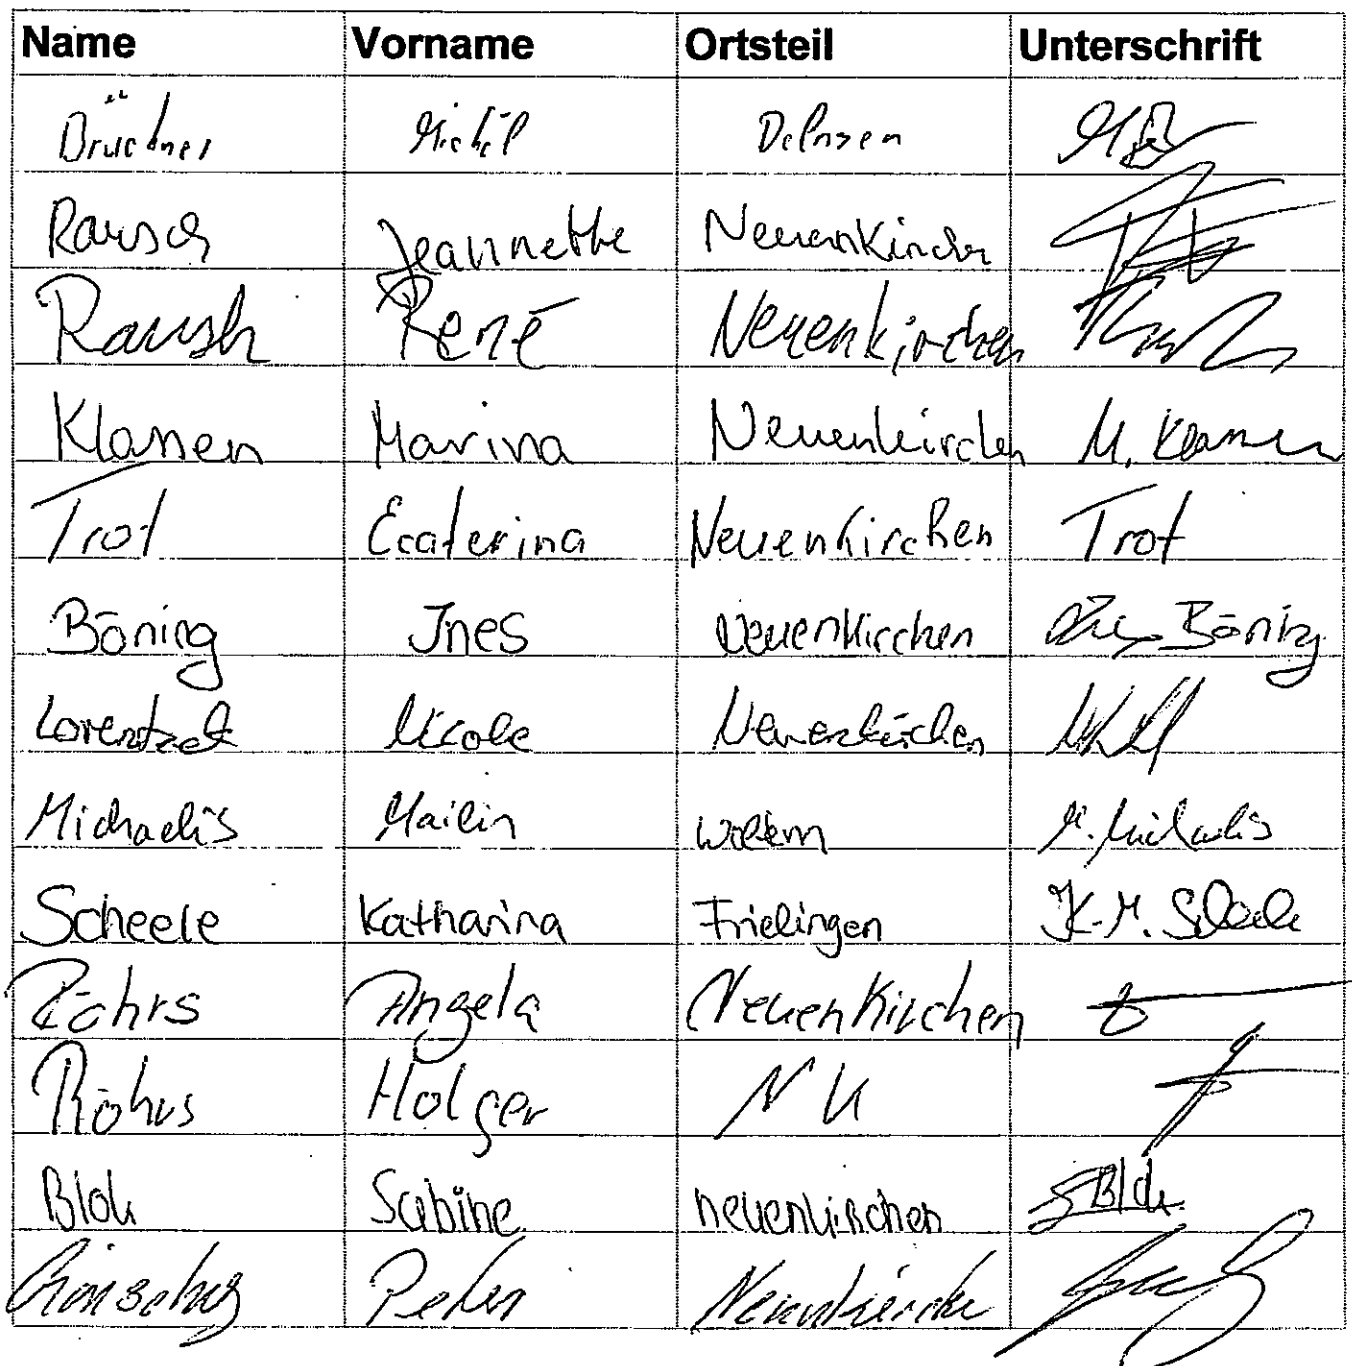 Name Vorname Ortsteil Unterschrift
Brückner Michél Delmsen
Rausch Jeannette Neuenkirchen
Rausch René Neuenkirchen
Klassen Marina Neuenkirchen M. Klassen
Trot Ecaterina Neuenkirchen Trot
Böning Ines Neuenkirchen Ines Böning
Nicole Neuenkirchen
Michaelis Mailin M. Michaelis
Scheele Katharina Frielingen K.-M. Scheele
Röhrs Angela Neuenkirchen
Röhrs Holger NK
Blok Sabine neuenkirchen S Blok
Peter Neuenkirchen